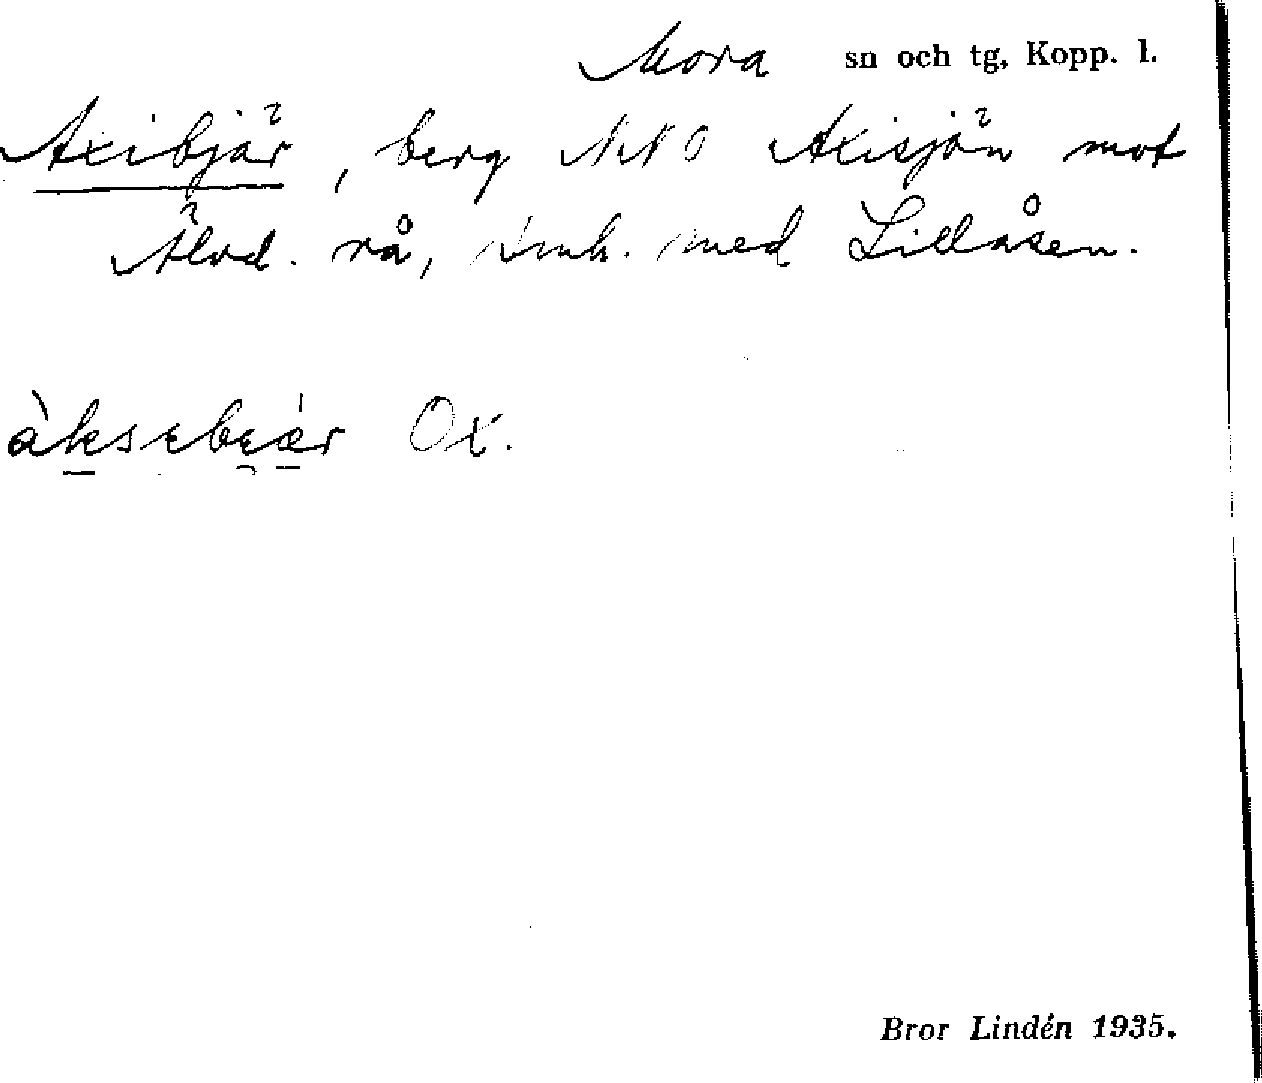 Mora sn och tg, Kopp. l.
Axibjär, berg NNO Axisjön mot
Älvd. rå, smh. med Lillåsen.
àksebeár Ox.
Bror Lindén 1935.